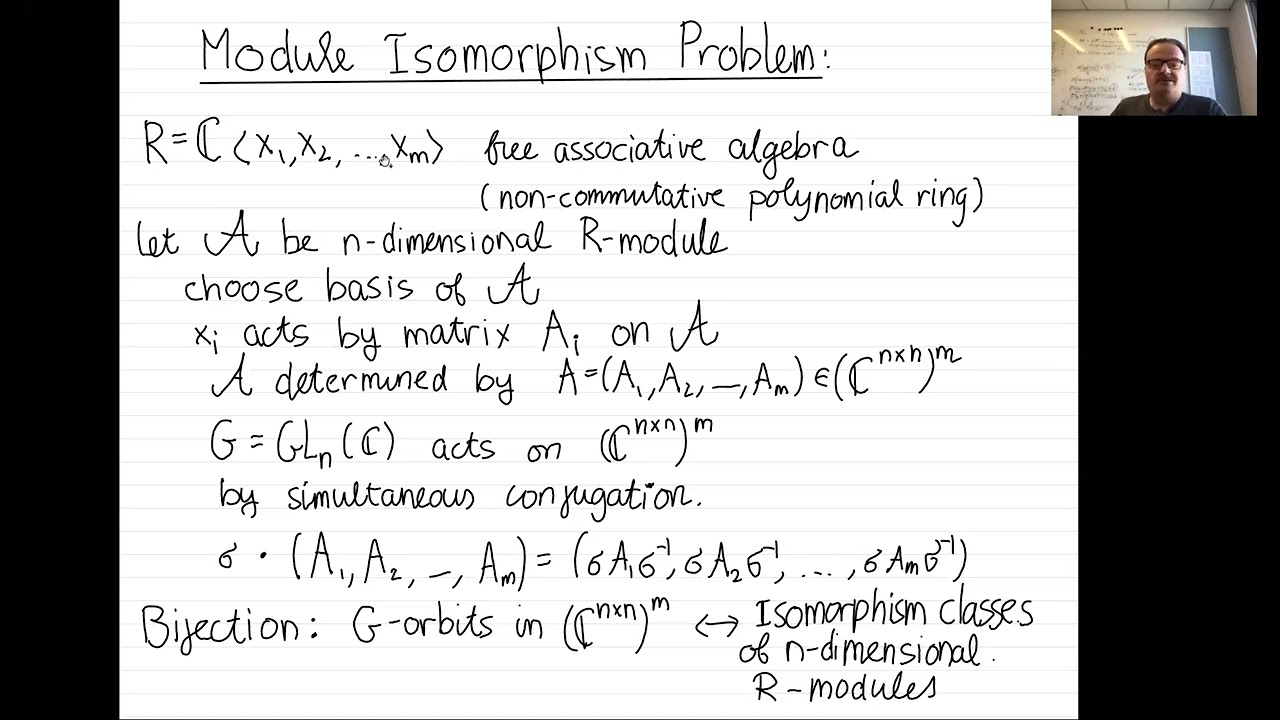 Module Isomorphism Problem:
R = ℂ⟨x₁, x₂, ..., xₘ⟩ free associative algebra
(non-commutative polynomial ring)
let 𝒜 be n-dimensional R-module
choose basis of 𝒜
xᵢ acts by matrix Aᵢ on 𝒜
𝒜 determined by A = (A₁, A₂, —, Aₘ) ∈ (ℂⁿˣⁿ)ᵐ
G = GLₙ(ℂ) acts on (ℂⁿˣⁿ)ᵐ
by simultaneous conjugation.
σ · (A₁, A₂, —, Aₘ) = (σA₁σ⁻¹, σA₂σ⁻¹, ..., σAₘσ⁻¹)
Bijection: G-orbits in (ℂⁿˣⁿ)ᵐ ↔ Isomorphism classes
of n-dimensional.
R-modules